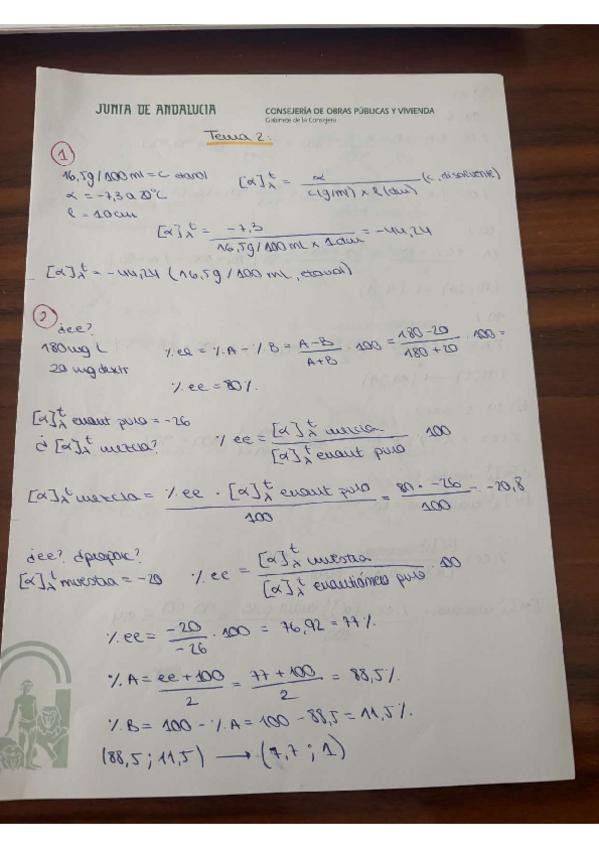 JUNTA DE ANDALUCIA
CONSEJERÍA DE OBRAS PÚBLICAS Y VIVIENDA
Gabinete de la Consejera
Tema 2:
1
16,5g/100 ml = C etanol
α = -7,3 a 20°C
l = 10 cm
[α]λᵗ = α / (c(g/ml) x l(dm)) (c, disolvente)
[α]λᵗ = -7,3 / (16,5g/100 mL x 1dm) = -44,24
[α]λᵗ = -44,24 (16,5g/100 mL, etanol)
2
¿ee?
180 mg L
20 mg dextr
% ee = % A - % B = (A-B)/(A+B) · 100 = (180-20)/(180+20) · 100 =
% ee = 80%.
[α]λᵗ enant puro = -26
¿[α]λᵗ mezcla?
% ee = [α]λᵗ mezcla / [α]λᵗ enant puro · 100
[α]λᵗ mezcla = (% ee · [α]λᵗ enant puro)/100 = (80 · -26)/100 = -20,8
¿ee? ¿proporc?
[α]λᵗ muestra = -20
% ee = [α]λᵗ muestra / [α]λᵗ enantiómero puro · 100
% ee = -20/-26 · 100 = 76,92 = 77%
% A = (ee + 100)/2 = (77 + 100)/2 = 88,5%
% B = 100 - % A = 100 - 88,5 = 11,5%.
(88,5 ; 11,5) → (7,7 ; 1)